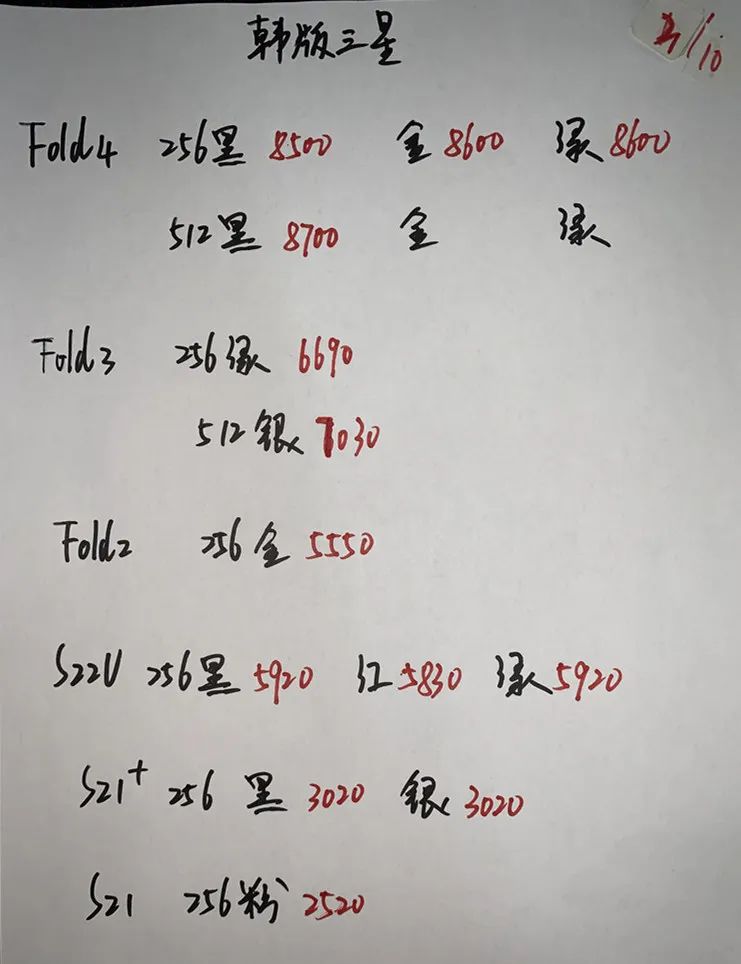 韩版三星
Fold4 256黑 8500 金 8600 绿 8600
512黑 8700 金 绿
Fold3 256绿 6690
512银 7030
Fold2 256金 5550
S22U 256黑 5920 红 5830 绿 5920
S21+ 256 黑 3020 银 3020
S21 256粉 2520